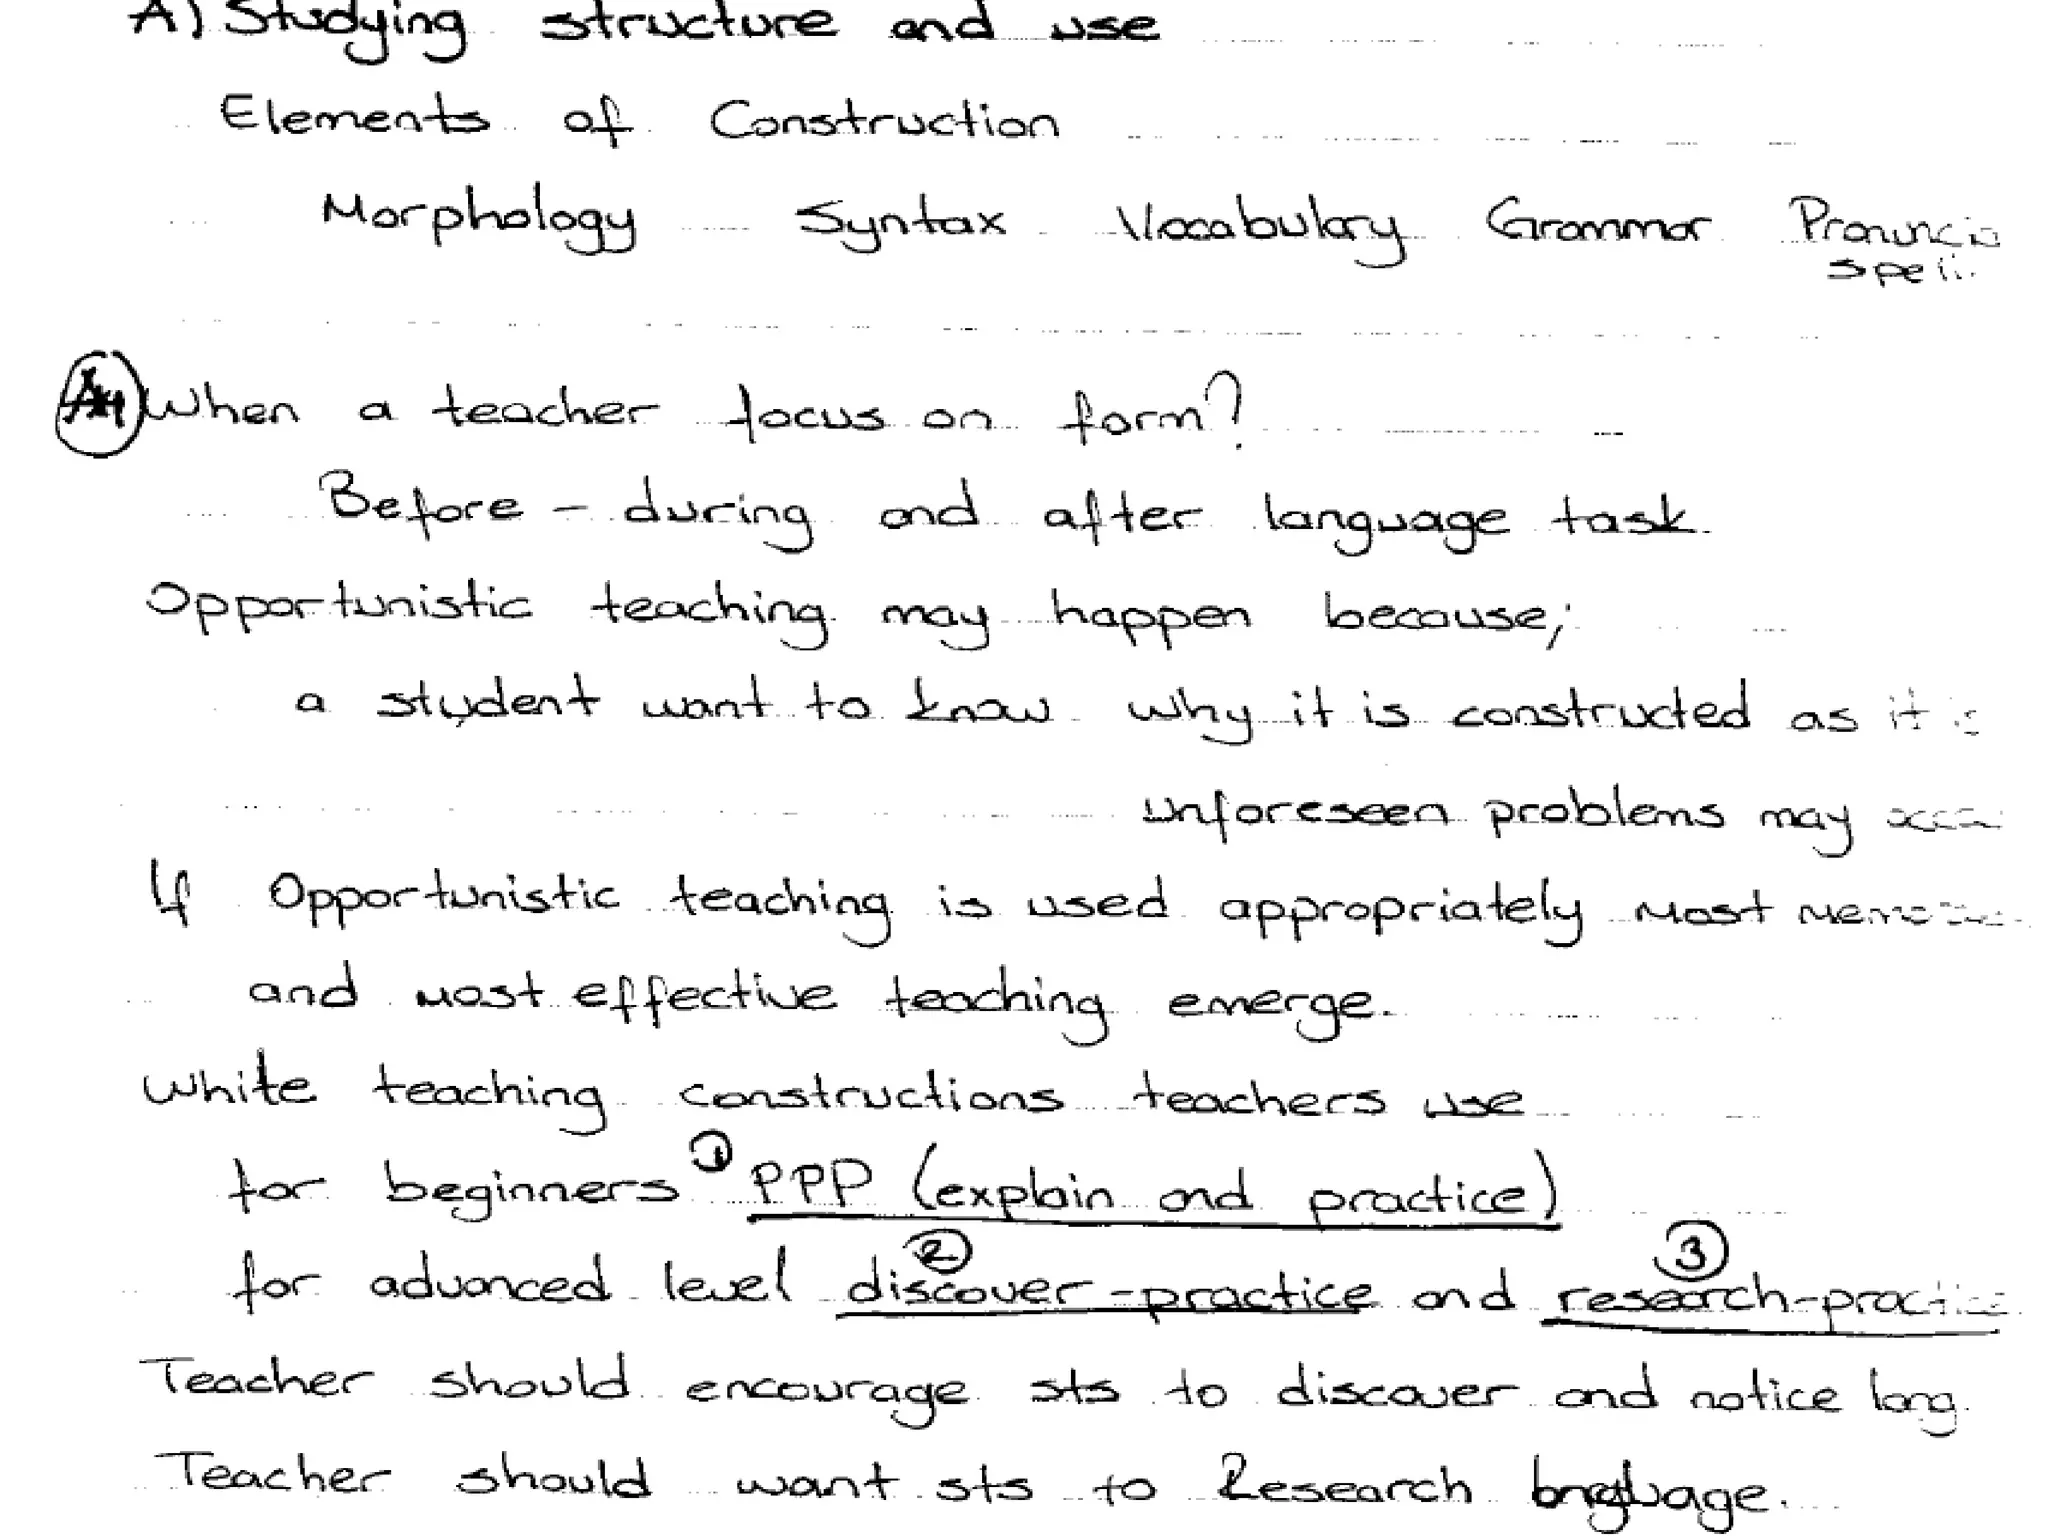 A) Studying structure and use
Elements of Construction
Morphology Syntax Vocabulary Grammar Pronuncia
spell.
When a teacher focus on form?
Before - during and after language task.
Opportunistic teaching may happen because;
a student want to know why it is constructed as it is
unforeseen problems may
If Opportunistic teaching is used appropriately most
and most effective teaching emerge.
White teaching constructions teachers use
for beginners ① PPP (explain and practice)
for advanced level ② discover-practice and ③ research-practice
Teacher should encourage sts to discover and notice lang.
Teacher should want sts to Research language.